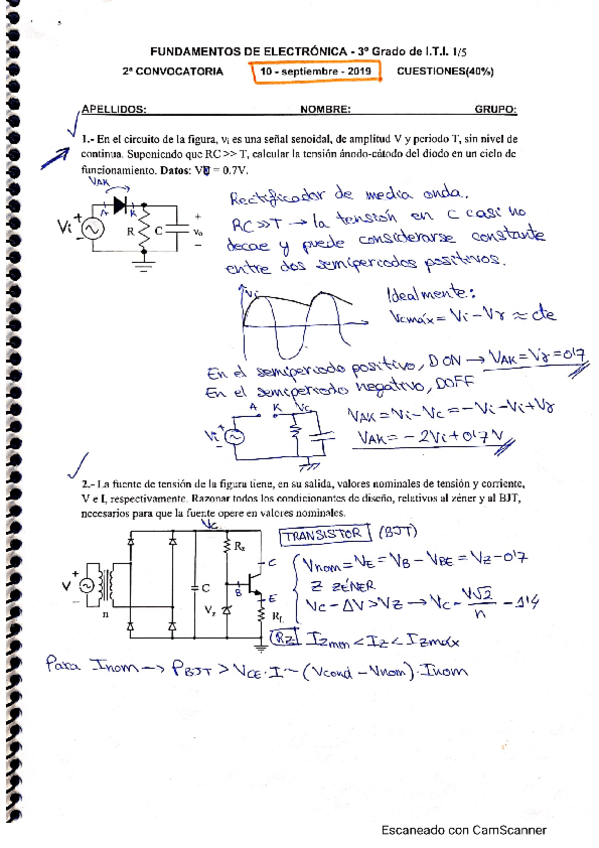 FUNDAMENTOS DE ELECTRÓNICA - 3º Grado de I.T.I. 1/5
2ª CONVOCATORIA 10 - septiembre - 2019 CUESTIONES(40%)
APELLIDOS: NOMBRE: GRUPO:
1.- En el circuito de la figura, vi es una señal senoidal, de amplitud V y periodo T, sin nivel de
continua. Suponiendo que RC >> T, calcular la tensión ánodo-cátodo del diodo en un ciclo de
funcionamiento. Datos: Vγ = 0.7V.
VAK
A K
Vi + - R C + vo -
Rectificador de media onda.
RC>>T → la tensión en C casi no
decae y puede considerarse constante
entre dos semiperiodos positivos.
Vi
Idealmente:
Vcmáx = Vi - Vγ ≈ cte
En el semiperiodo positivo, D ON → VAK = Vγ = 0'7
En el semiperiodo negativo, D OFF
A K Vc
Vi + -
VAK = Vi - Vc = - Vi - Vi + Vγ
VAK = - 2Vi + 0'7 V
2.- La fuente de tensión de la figura tiene, en su salida, valores nominales de tensión y corriente,
V e I, respectivamente. Razonar todos los condicionantes de diseño, relativos al zéner y al BJT,
necesarios para que la fuente opere en valores nominales.
Vc
TRANSISTOR (BJT)
V + - n C Rz Vz B C E RL
Vnom = VE = VB - VBE = VZ - 0'7
Z ZÉNER
Vc - ΔV > VZ → Vc - V√2/n - 1'4
RZ Izmin < Iz < Izmáx
Para Inom → PBJT > VCE · I ~ (Vcond - Vnom) · Inom
Escaneado con CamScanner